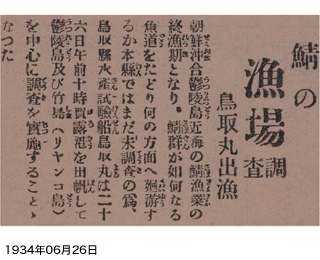 鯖の
漁場調査
鳥取丸出漁
朝鮮沖合鬱陵島近海の鯖漁業の
終漁期となり、鯖群が如何なる
魚道をたどり何の方面へ廻游す
るか本縣ではまだ未調査の爲、
鳥取縣水産試驗船鳥取丸は二十
六日午前十時賀露港を出帆して
鬱陵島及び竹島(リヤンコ島)
を中心に調査を實施することゝ
なつた
1934年06月26日